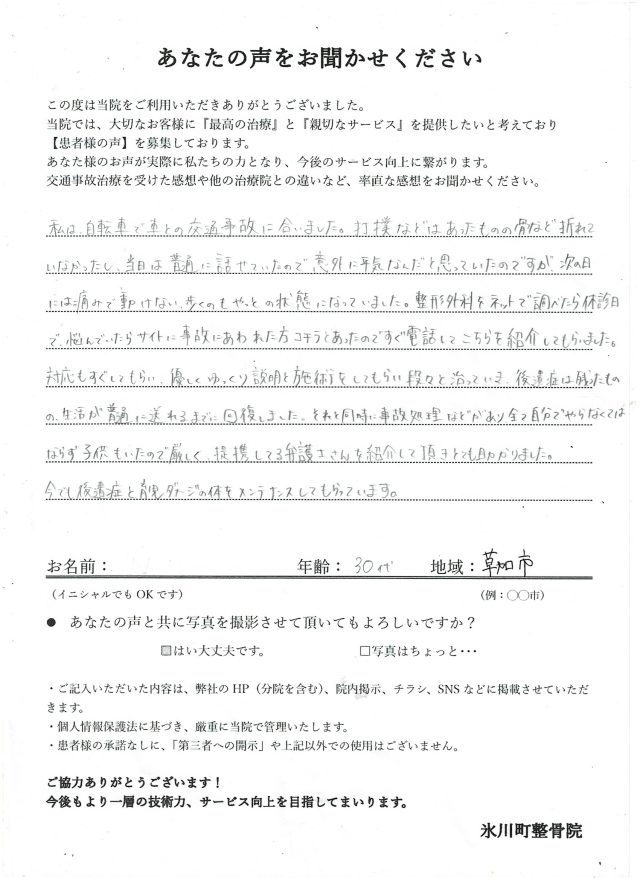 あなたの声をお聞かせください
この度は当院をご利用いただきありがとうございました。
当院では、大切なお客様に『最高の治療』と『親切なサービス』を提供したいと考えており
【患者様の声】を募集しております。
あなた様のお声が実際に私たちの力となり、今後のサービス向上に繋がります。
交通事故治療を受けた感想や他の治療院との違いなど、率直な感想をお聞かせください。
私は、自転車で車との交通事故に合いました。打撲などはあったものの骨など折れて
いなかったし、当日は普通に話せていたので意外に平気なんだと思っていたのですが、次の日
には痛みで動けない、歩くのもやっとの状態になっていました。整形外科をネットで調べたら休診日
で、悩んでいたらサイトに事故にあわれた方コチラとあったのですぐ電話してこちらを紹介してもらいました。
対応もすぐしてもらい、優しくゆっくり説明と施術をしてもらい段々と治っていき、後遺症は残ったもの
の、生活が普通に送れるまでに回復しました。それと同時に事故処理などがあり全て自分でやらなくては
ならず子供もいたので厳しく、提携してる弁護士さんを紹介して頂きとても助かりました。
今でも後遺症と育児ダメージの体をメンテナンスしてもらっています。
お名前： 年齢： 30代 地域： 草加市
（イニシャルでもOKです） （例：〇〇市）
● あなたの声と共に写真を撮影させて頂いてもよろしいですか？
■はい大丈夫です。 □写真はちょっと・・・
・ご記入いただいた内容は、弊社のHP（分院を含む）、院内掲示、チラシ、SNSなどに掲載させていただ
きます。
・個人情報保護法に基づき、厳重に当院で管理いたします。
・患者様の承諾なしに、「第三者への開示」や上記以外での使用はございません。
ご協力ありがとうございます！
今後もより一層の技術力、サービス向上を目指してまいります。
氷川町整骨院